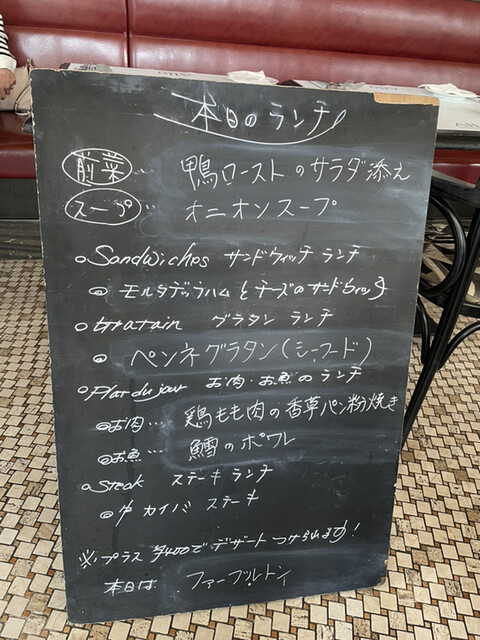 本日のランチ
前菜… 鴨ローストのサラダ添え
スープ… オニオンスープ
○Sandwiches サンドウィッチ ランチ
◎モルタデッラハムとチーズのサンドウィッチ
○Gratain グラタン ランチ
◎ペンネグラタン(シーフード)
○Plat du jour お肉・お魚のランチ
◎お肉… 鶏もも肉の香草パン粉焼き
◎お魚… 鱈のポワレ
○Steak ステーキランチ
◎牛カイノバ ステーキ
※プラス ¥400でデザートつけられます!
本日は ファーブルトン